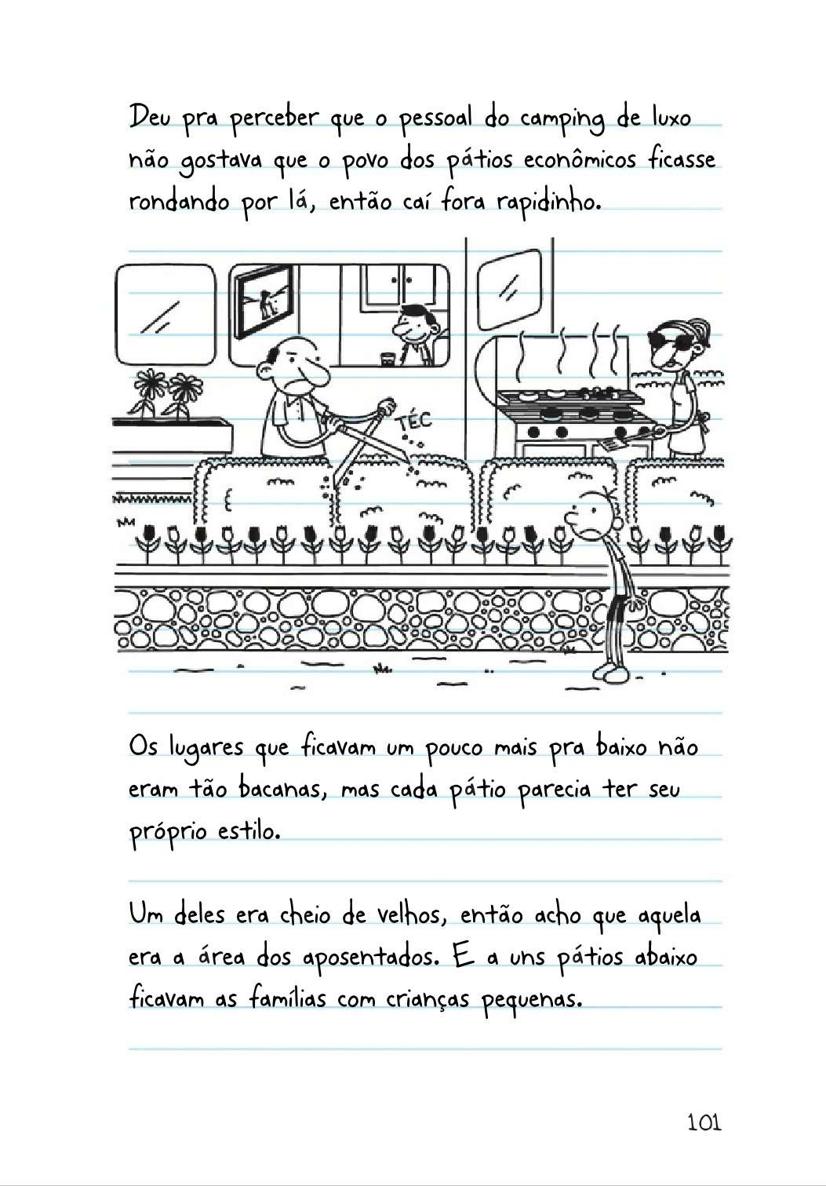 Deu pra perceber que o pessoal do camping de luxo
não gostava que o povo dos pátios econômicos ficasse
rondando por lá, então caí fora rapidinho.
TÉC
Os lugares que ficavam um pouco mais pra baixo não
eram tão bacanas, mas cada pátio parecia ter seu
próprio estilo.
Um deles era cheio de velhos, então acho que aquela
era a área dos aposentados. E a uns pátios abaixo
ficavam as famílias com crianças pequenas.
101